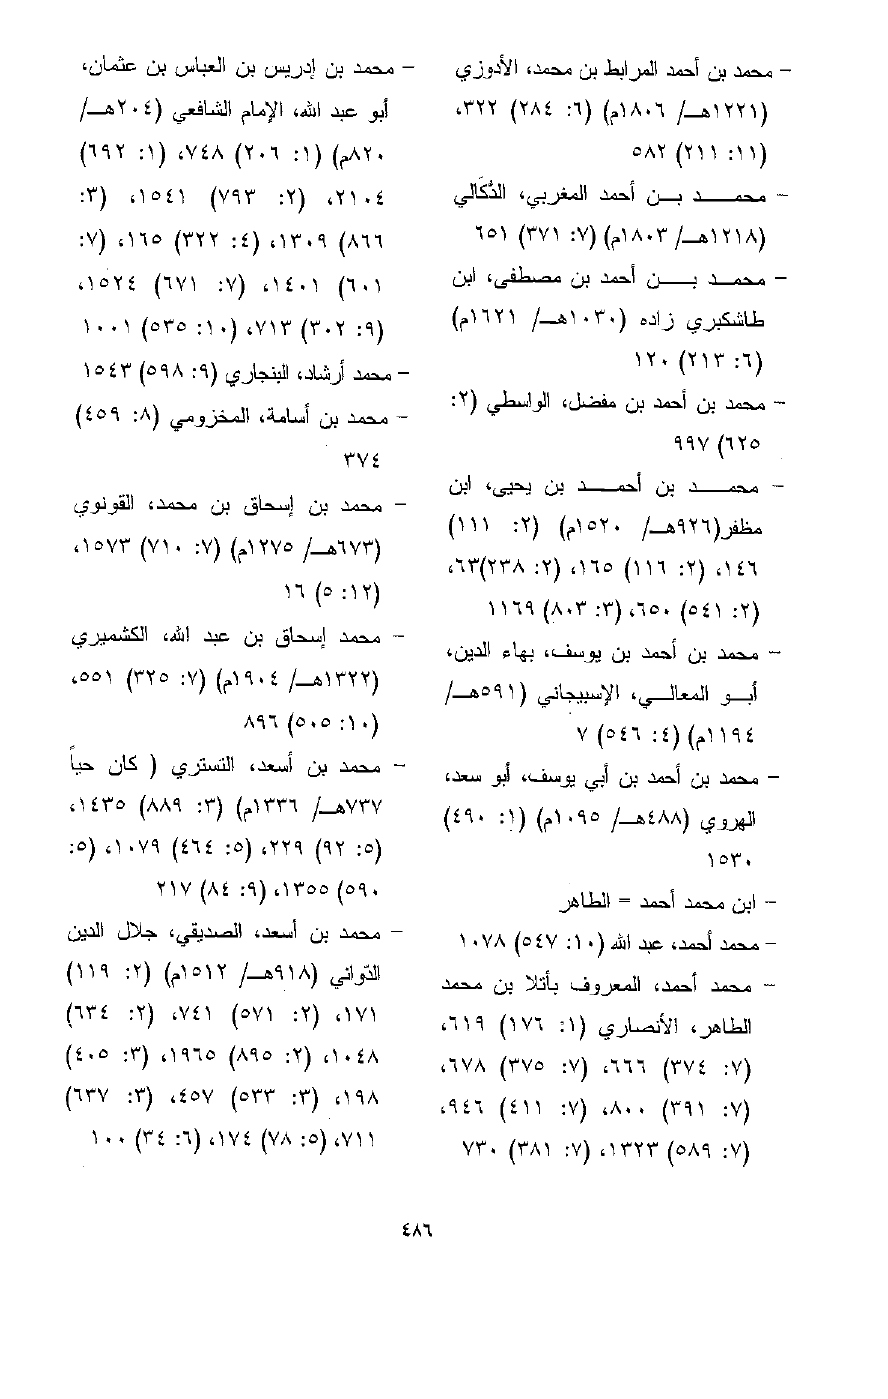 - محمد بن أحمد المرابط بن محمد، الأدوزي
(١٢٢١هـ/ ١٨٠٦م) (٦: ٢٨٤) ٣٢٢،
(١١: ٢١١) ٥٨٢
- محمد بن أحمد المغربي، الدُّكّالي
(١٢١٨هـ/ ١٨٠٣م) (٧: ٣٧١) ٦٥١
- محمد بن أحمد بن مصطفى، ابن
طاشكبري زاده (١٠٣٠هـ/ ١٦٢١م)
(٦: ٢١٣) ١٢٠
- محمد بن أحمد بن مفضل، الواسطي (٢:
٦٢٥) ٩٩٧
- محمد بن أحمد بن يحيى، ابن
مظفر(٩٢٦هـ/ ١٥٢٠م) (٢: ١١١)
١٤٦، (٢: ١١٦) ١٦٥، (٢: ٢٣٨)٦٣،
(٢: ٥٤١) ٦٥٠، (٣: ٨٠٣) ١١٦٩
- محمد بن أحمد بن يوسف، بهاء الدين،
أبو المعالي، الإسبيجاني (٥٩١هـ/
١١٩٤م) (٤: ٥٤٦) ٧
- محمد بن أحمد بن أبي يوسف، أبو سعد،
الهروي (٤٨٨هـ/ ١٠٩٥م) (١: ٤٩٠)
١٥٣٠
- ابن محمد أحمد = الطاهر
- محمد أحمد، عبد الله (١٠: ٥٤٧) ١٠٧٨
- محمد أحمد، المعروف بأتلا بن محمد
الطاهر، الأنصاري (١: ١٧٦) ٦١٩،
(٧: ٣٧٤) ٦٦٦، (٧: ٣٧٥) ٦٧٨،
(٧: ٣٩١) ٨٠٠، (٧: ٤١١) ٩٤٦،
(٧: ٥٨٩) ١٣٢٣، (٧: ٣٨١) ٧٣٠
- محمد بن إدريس بن العباس بن عثمان،
أبو عبد الله، الإمام الشافعي (٢٠٤هـ/
٨٢٠م) (١: ٢٠٦) ٧٤٨، (١: ٦٩٢)
٢١٠٤، (٢: ٧٩٣) ١٥٤١، (٣:
٨٦٦) ١٣٠٩، (٤: ٣٢٢) ١٦٥، (٧:
٦٠١) ١٤٠١، (٧: ٦٧١) ١٥٢٤،
(٩: ٣٠٢) ٧١٣، (١٠: ٥٣٥) ١٠٠١
- محمد أرشاد، البنجاري (٩: ٥٩٨) ١٥٤٣
- محمد بن أسامة، المخزومي (٨: ٤٥٩)
٣٧٤
- محمد بن إسحاق بن محمد، القونوي
(٦٧٣هـ/ ١٢٧٥م) (٧: ٧١٠) ١٥٧٣،
(١٢: ٥) ١٦
- محمد إسحاق بن عبد الله، الكشميري
(١٣٢٢هـ/ ١٩٠٤م) (٧: ٣٢٥) ٥٥١،
(١٠: ٥٠٥) ٨٩٦
- محمد بن أسعد، التستري ( كان حياً
٧٣٧هـ/ ١٣٣٦م) (٣: ٨٨٩) ١٤٣٥،
(٥: ٩٢) ٢٢٩، (٥: ٤٦٤) ١٠٧٩، (٥:
٥٩٠) ١٣٥٥، (٩: ٨٤) ٢١٧
- محمد بن أسعد، الصديقي، جلال الدين
الدّواني (٩١٨هـ/ ١٥١٢م) (٢: ١١٩)
١٧١، (٢: ٥٧١) ٧٤١، (٢: ٦٣٤)
١٠٤٨، (٢: ٨٩٥) ١٩٦٥، (٣: ٤٠٥)
١٩٨، (٣: ٥٣٣) ٤٥٧، (٣: ٦٣٧)
٧١١، (٥: ٧٨) ١٧٤، (٦: ٣٤) ١٠٠
٤٨٦